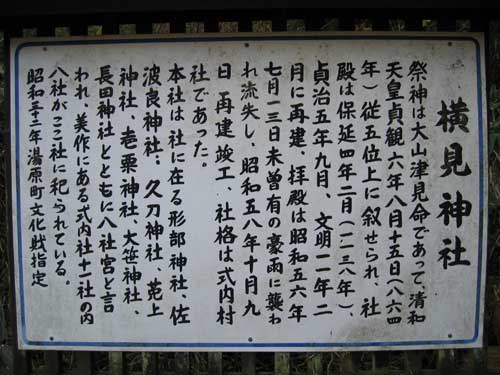 横見神社
祭神は大山津見命であって、清和
天皇貞観六年八月十五日(八六四
年)従五位上に叙せられ、社
殿は保延四年二月(一一三八年)、
貞治五年九月、文明一一年二
月に再建、拝殿は昭和五六年
七月一三日未曽有の豪雨に襲わ
れ流失し、昭和五八年十月九
日再建竣工、社格は式内村
社であった。
本社は、社に在る形部神社、佐
波良神社、久刀神社、菟上
神社、壱粟神社、大笹神社、
長田神社とともに八社宮と言
われ、美作にある式内社十一社の内
八社がここ社に祀られている。
昭和三十二年湯原町文化財指定